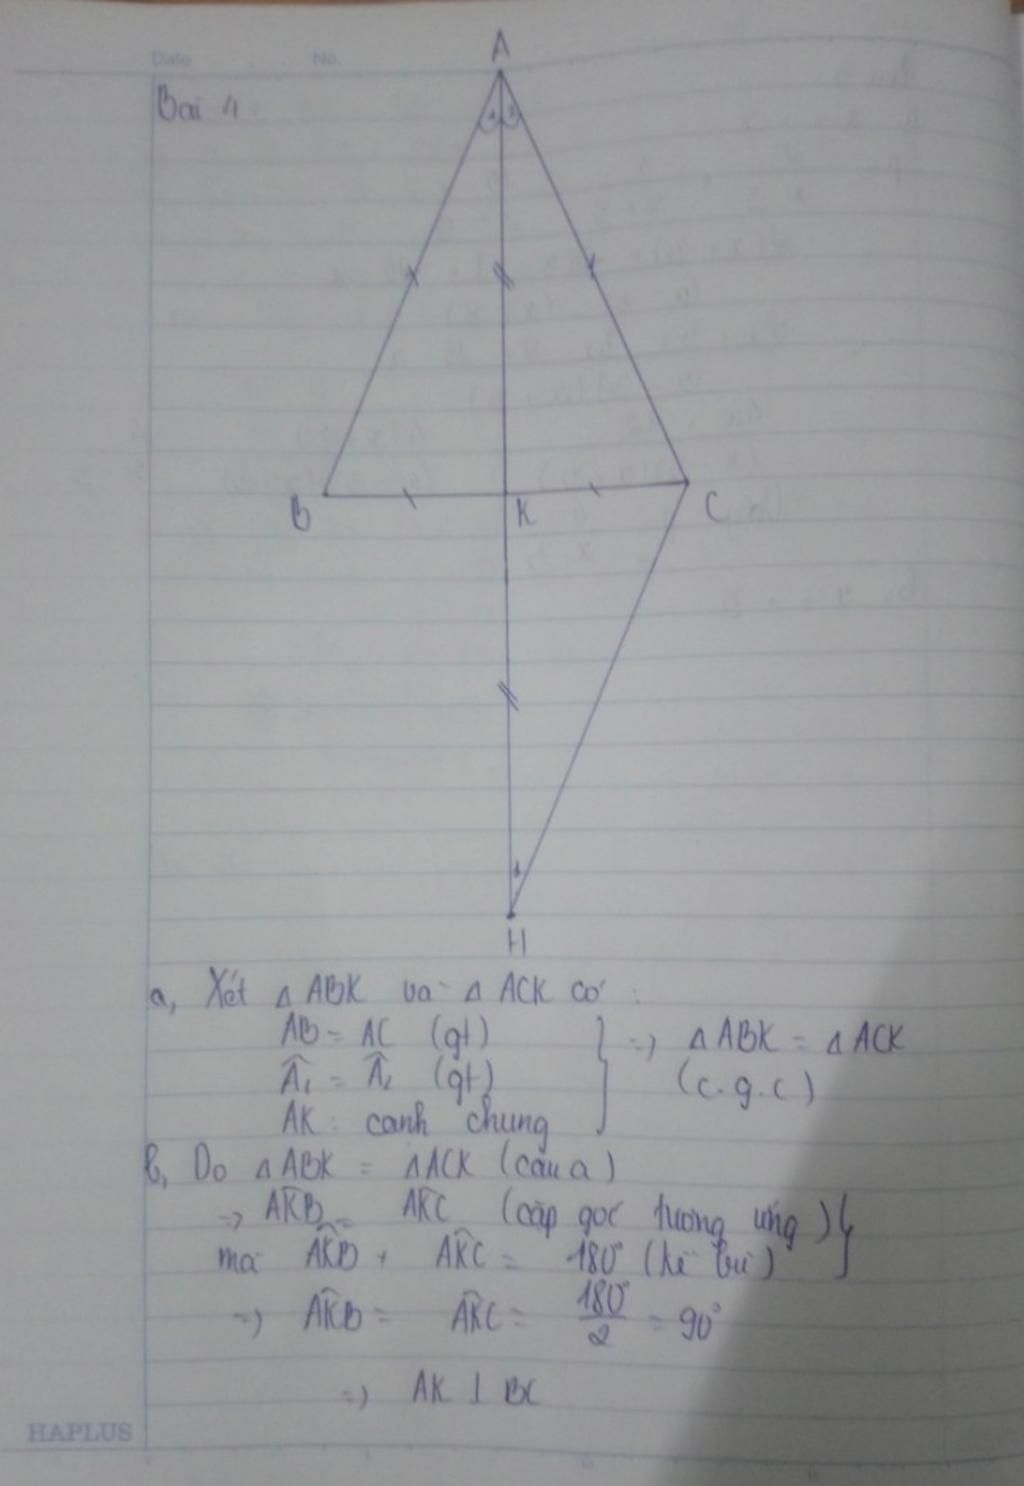 Date No.
Bài 4:
A
1 2
B K C
1
H
a, Xét △ ABK và △ ACK có :
AB = AC (gt)
Â₁ = Â₂ (gt) } => △ ABK = △ ACK
AK : cạnh chung (c.g.c)
b, Do △ ABK = △ACK (câu a)
=> AKB = AKC (cặp góc tương ứng) }
mà AKB + AKC = 180° (kề bù)
=> AKB = AKC = 180°/2 = 90°
=> AK ⊥ BC
HAPLUS